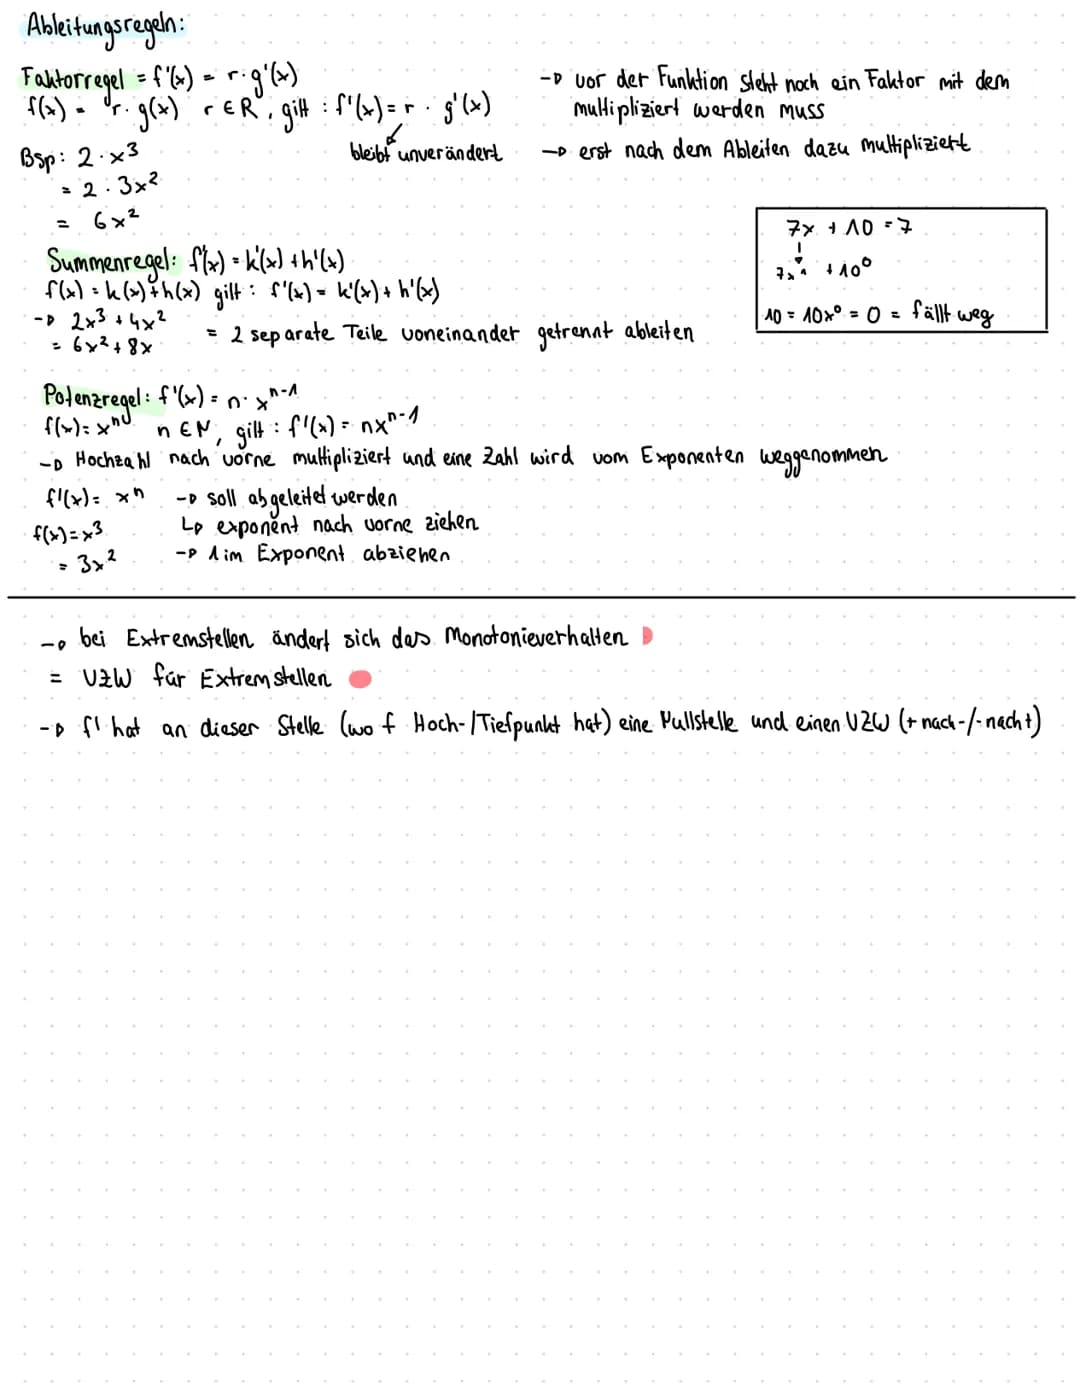 Ableitungsregeln:
Faktorregel = f'(x) = r · g'(x)
f(x) = r · g(x) r ∈ R, gilt : f'(x) = r · g'(x)
bleibt unverändert
→ vor der Funktion steht noch ein Faktor mit dem
multipliziert werden muss
→ erst nach dem Ableiten dazu multipliziert
Bsp: 2 · x³
= 2 · 3x²
= 6x²
7x + 10 = 7
7x¹ + 10⁰
10 = 10x⁰ = 0 = fällt weg
Summenregel: f'(x) = k'(x) + h'(x)
f(x) = k(x) + h(x) gilt : f'(x) = k'(x) + h'(x)
→ 2x³ + 4x²
= 6x² + 8x
= 2 separate Teile voneinander getrennt ableiten
Potenzregel: f'(x) = n · xⁿ⁻¹
f(x) = xⁿ n ∈ N, gilt : f'(x) = nxⁿ⁻¹
→ Hochzahl nach vorne multipliziert und eine Zahl wird vom Exponenten weggenommen
f'(x) = xⁿ → soll abgeleitet werden
f(x) = x³ ↳ exponent nach vorne ziehen
= 3x² → 1 im Exponent abziehen
→ bei Extremstellen ändert sich das Monotonieverhalten
= VZW für Extremstellen
→ f' hat an dieser Stelle (wo f Hoch-/Tiefpunkt hat) eine Nullstelle und einen VZW (+ nach -/- nach +)